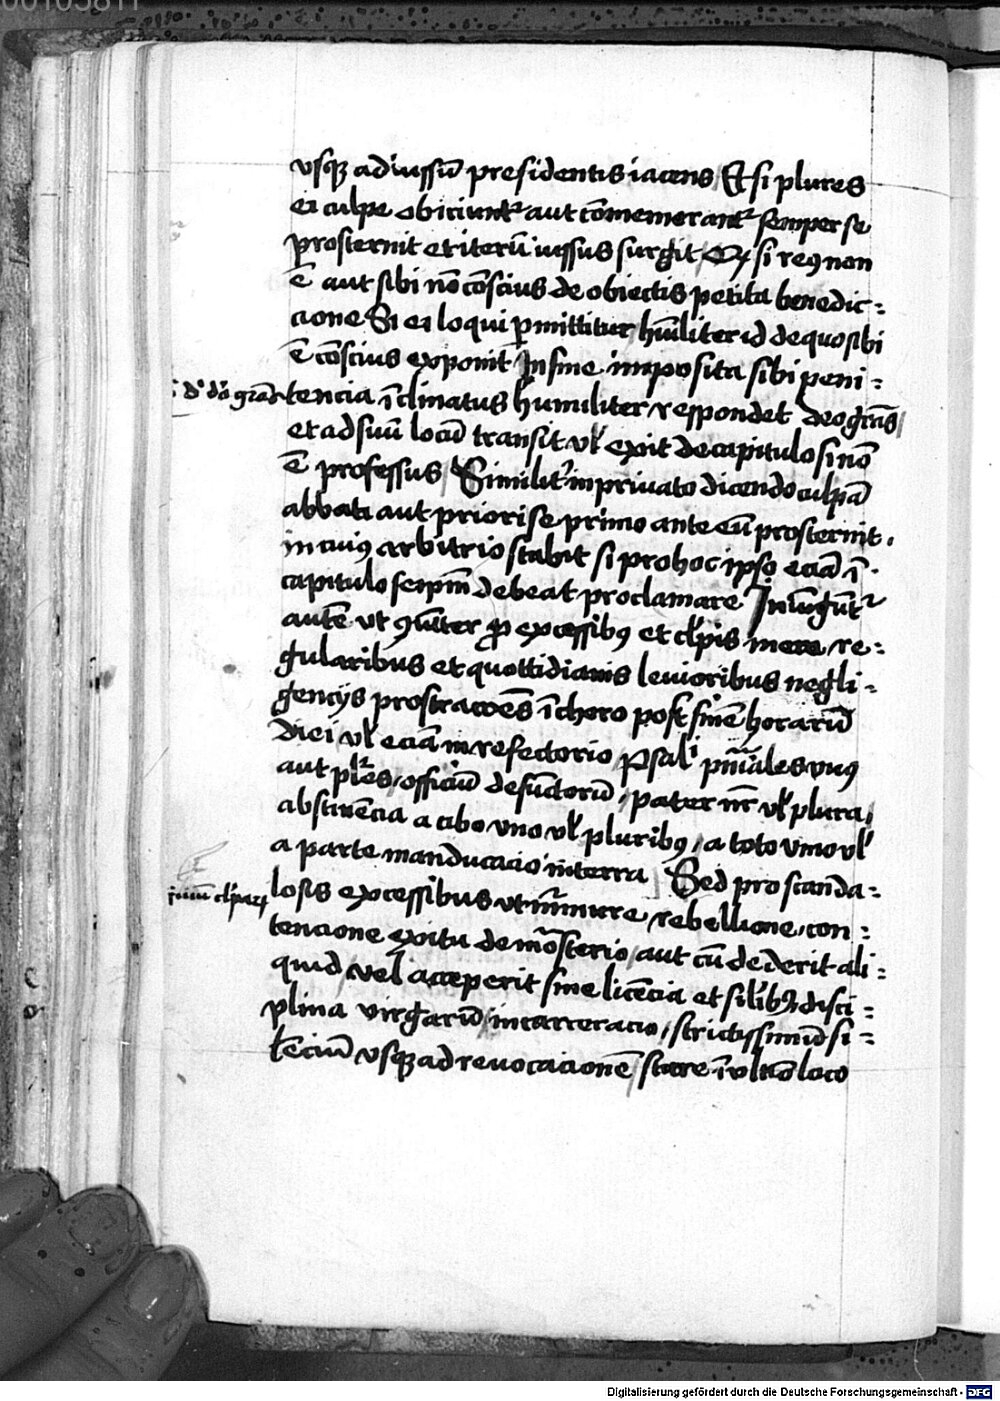 usqȝ ad iussū presidentis iacens / Et si plures
ei culpe obiciuntr aut cōmemorantr semper se
prosternit et iterū iussus surgit / Qꝫ si reꝯ non
ē aut sibi nō cōscius de obiectis petita benedic=
cione Si ei loqui ꝑmittitur hūiliter id de quo sibi
ē cōscius exponit In fine imposita sibi peni=
tencia īclinatus humiliter respondet deo grās /
et ad suū locū transit vl exit de capitulo si nō
ē professus / Similitr in priuato dicendo culpā
abbati aut priori se primo ante eū prosternit .
in cuiꝯ arbitrio stabit si pro hoc ipso eciā ī
capitulo seipm̄ debeat proclamare Iniūgūtr
autē ut ꝯiter pro excessibꝯ et clpis mere re=
gularibus et quottidianis leuioribus negli=
gencijs prostracōes ī choro post finē horarū
Diei vl eciā in refectorio , Psalī pnīales vnꝯ
aut plres / officiū defūctorū , pater nr vl plura /
abstinēcia a cibo vno vl pluribꝯ / a toto vino vl
a parte manducacio in terra Sed pro scanda=
losis excessibus ut murmure rebellione , con=
tencione exitu de mōsterio / aut cū dederit ali=
quid / vel acceperit sine licēcia et silibꝯ , disci=
plina virgarū / incarceracio , strictissimū si=
lēciū usqȝ ad reuocacionē / stare ī vltīo loco
Digitalisierung gefördert durch die Deutsche Forschungsgemeinschaft - DFG